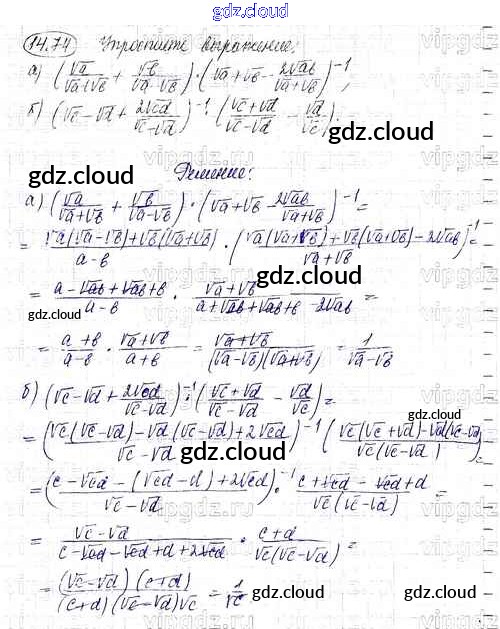 gdz.cloud
14.74 Упростите выражение:
а) (√a/(√a+√b) + √b/(√a-√b)) · (√a+√b - 2√ab/(√a+√b))⁻¹;
б) (√c-√d + 2√cd/(√c-√d))⁻¹ · ((√c+√d)/(√c-√d) - √d/√c).
gdz.cloud
Решение:
gdz.cloud
gdz.cloud
а) (√a/(√a+√b) + √b/(√a-√b)) · (√a+√b - 2√ab/(√a+√b))⁻¹ =
= (√a(√a-√b)+√b(√a+√b))/(a-b) · ((√a(√a+√b)+√b(√a+√b)-2√ab)/(√a+√b))⁻¹ =
= (a-√ab+√ab+b)/(a-b) · (√a+√b)/(a+√ab+√ab+b-2√ab) =
gdz.cloud
gdz.cloud
= (a+b)/(a-b) · (√a+√b)/(a+b) = (√a+√b)/((√a-√b)(√a+√b)) = 1/(√a-√b)
б) (√c-√d + 2√cd/(√c-√d))⁻¹ · ((√c+√d)/(√c-√d) - √d/√c) =
gdz.cloud
= ((√c(√c-√d)-√d(√c-√d)+2√cd)/(√c-√d))⁻¹ (√c(√c+√d)-√d(√c-√d))/(√c(√c-√d))
gdz.cloud
= ((c-√cd-(√cd-d)+2√cd)/(√c-√d))⁻¹ · (c+√cd-√cd+d)/(√c(√c-√d)) =
= (√c-√d)/(c-√cd-√cd+d+2√cd) · (c+d)/(√c(√c-√d)) =
= ((√c-√d)(c+d))/((c+d)(√c-√d)√c) = 1/√c
gdz.cloud
gdz.cloud